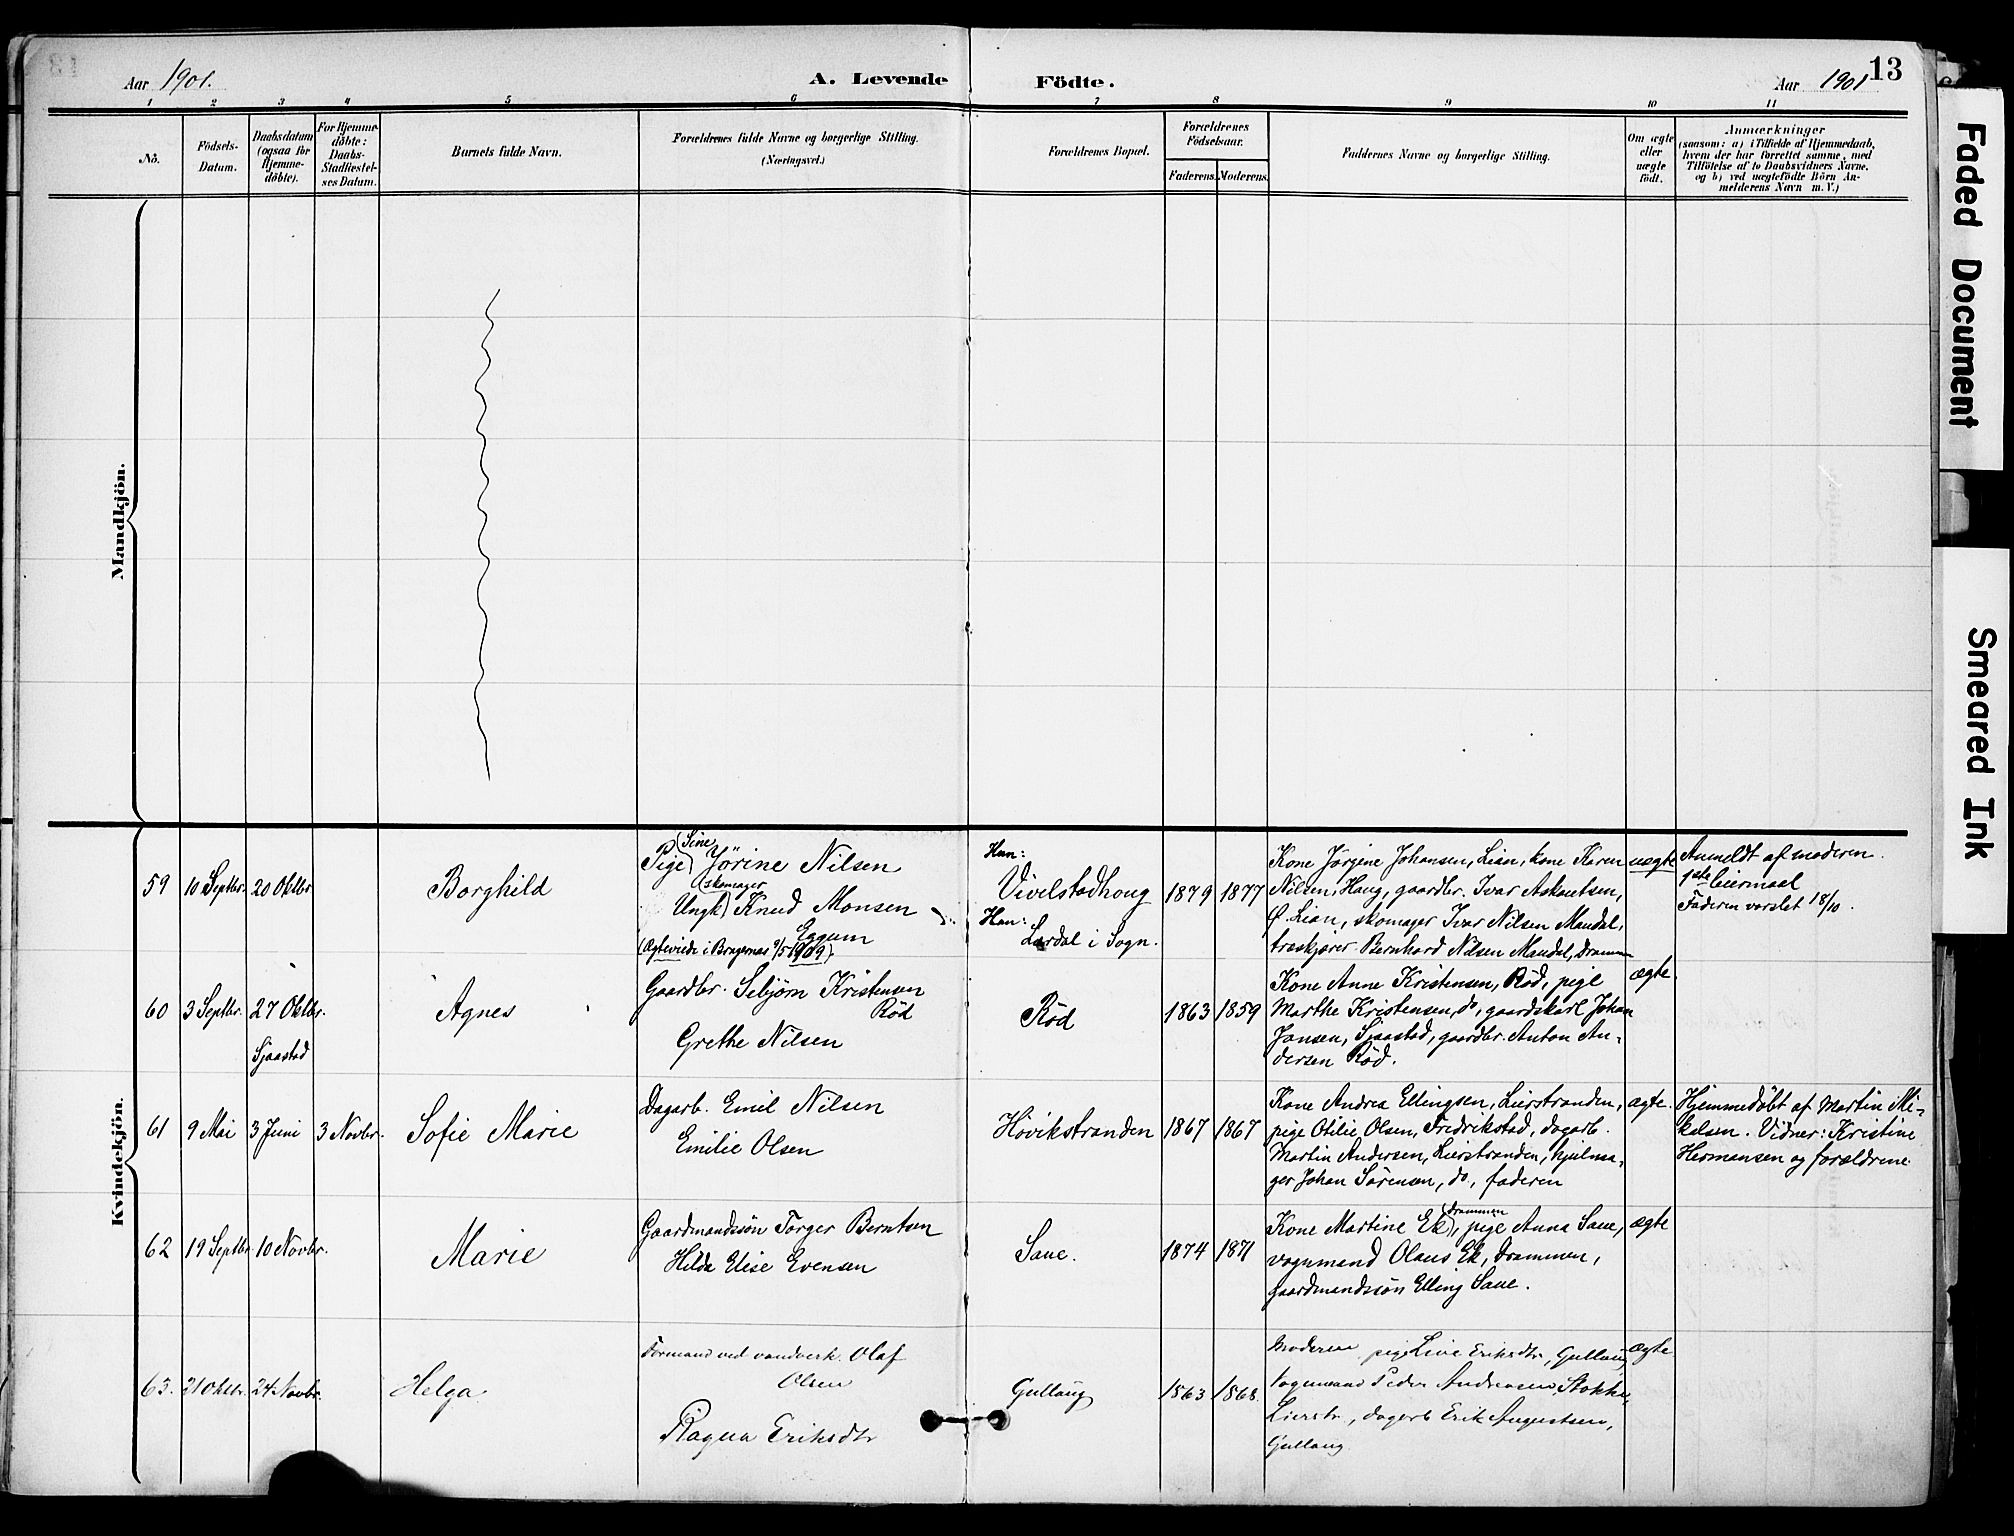 Aar 1901. A. Levende Födte. Aar 1901 13
1 2 3 4 5 6 7 8 9 10 11
No.
Födsels-
Datum.
Daabsdatum
(ogsaa for
Hjemme-
döbte).
For Hjemme-
döbte:
Daabs-
Stadfæstel-
ses Datum.
Barnets fulde Navn.
Forældrenes fulde Navne og borgerlige Stilling.
(Næringsvei.)
Forældrenes Bopæl.
Forældrenes
Födselsaar.
Faderens. Moderens.
Faddernes Navne og borgerlige Stilling.
Om ægte
eller
uægte
født.
Anmærkninger
(saasom: a) i Tilfælde af Hjemmedaab,
hvem der har forrettet samme, med
Tilföielse af to Daabsvidners Navne.
og b) ved uægtefödte Börn An-
melderens Navn m. V.)
Mandkjön.
Kvindekjön.
59
10 Septbr.
20 Oktbr
Borghild
(Sine)
Pige Jørine Nilsen
(skomager
Ungk) Knud Monsen
Eggum
(Ægteviede i Bragernes 9/5 1909).
Hun:
Vivelstadhoug
Han:
Lærdal i Sogn.
1879
1877
Kone Jørgine Johansen, Lian, kone Karen
Nilsen, Haug, gaardbr. Ivar Askautsen,
Ø. Lian, skomager Ivar Nilsen Mandal,
træskjærer Bernhard Nilsen Mandal, Drammen
uægte
Anmeldt af moderen.
1ste leiermaal
Faderen varslet 18/10.
60
3 Septbr.
27 Oktbr.
Sjaastad
Agnes
Gaardbr. Sebjørn Kristensen
Rød
Grethe Nilsen
Rød
1863
1859
Kone Anne Kristensen, Rød, pige
Marthe Kristensen, do, gaardskarl Johan
Jansen, Sjaastad, gaardbr. Anton An-
dersen Rød.
ægte.
61
9 Mai
3 Juni
3 Novbr.
Sofie Marie
Dagarb. Emil Nilsen
Emilie Olsen
Høvikstranden
1867
1867
Kone Andrea Ellingsen, Lierstranden,
pige Otilie Olsen, Fredrikstad, dagarb.
Martin Andersen, Lierstranden, hjulma-
ger Johan Sørensen, do, faderen
ægte.
Hjemmedøbt af Martin Mi-
kelsen. Vidner: Kristine
Hermansen og forældrene.
62
19 Septbr.
10 Novbr.
Marie
Gaardmandssøn Torger Berntsen
Hilda Elise Evensen
Saue.
1874
1871
(Drammen
Kone Martine Ek), pige Anna Saue,
vognmand Olaus Ek, Drammen,
gaardmandssøn Elling Saue.
ægte
63.
21 Oktbr.
24 Novbr.
Helga
Formand ved vandverk. Olaf
Olsen
Ragna Eriksdtr
Gullaug
1863
1868.
Moderen, pige Live Eriksdtr, Gullaug
Vognmand Peder Andresen, Stokke,
Lierstr., dagarb Erik Augustsen,
Gullaug
ægte
Faded Document
Smeared Ink